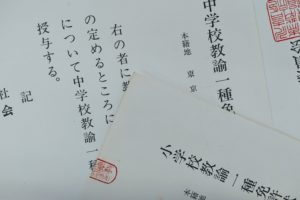 中学校教諭一種免
本籍地 東京
右の者に
の定めるところに
について中学校教諭一種
授与する。
記
社会
小学校教諭一種免許状
本籍